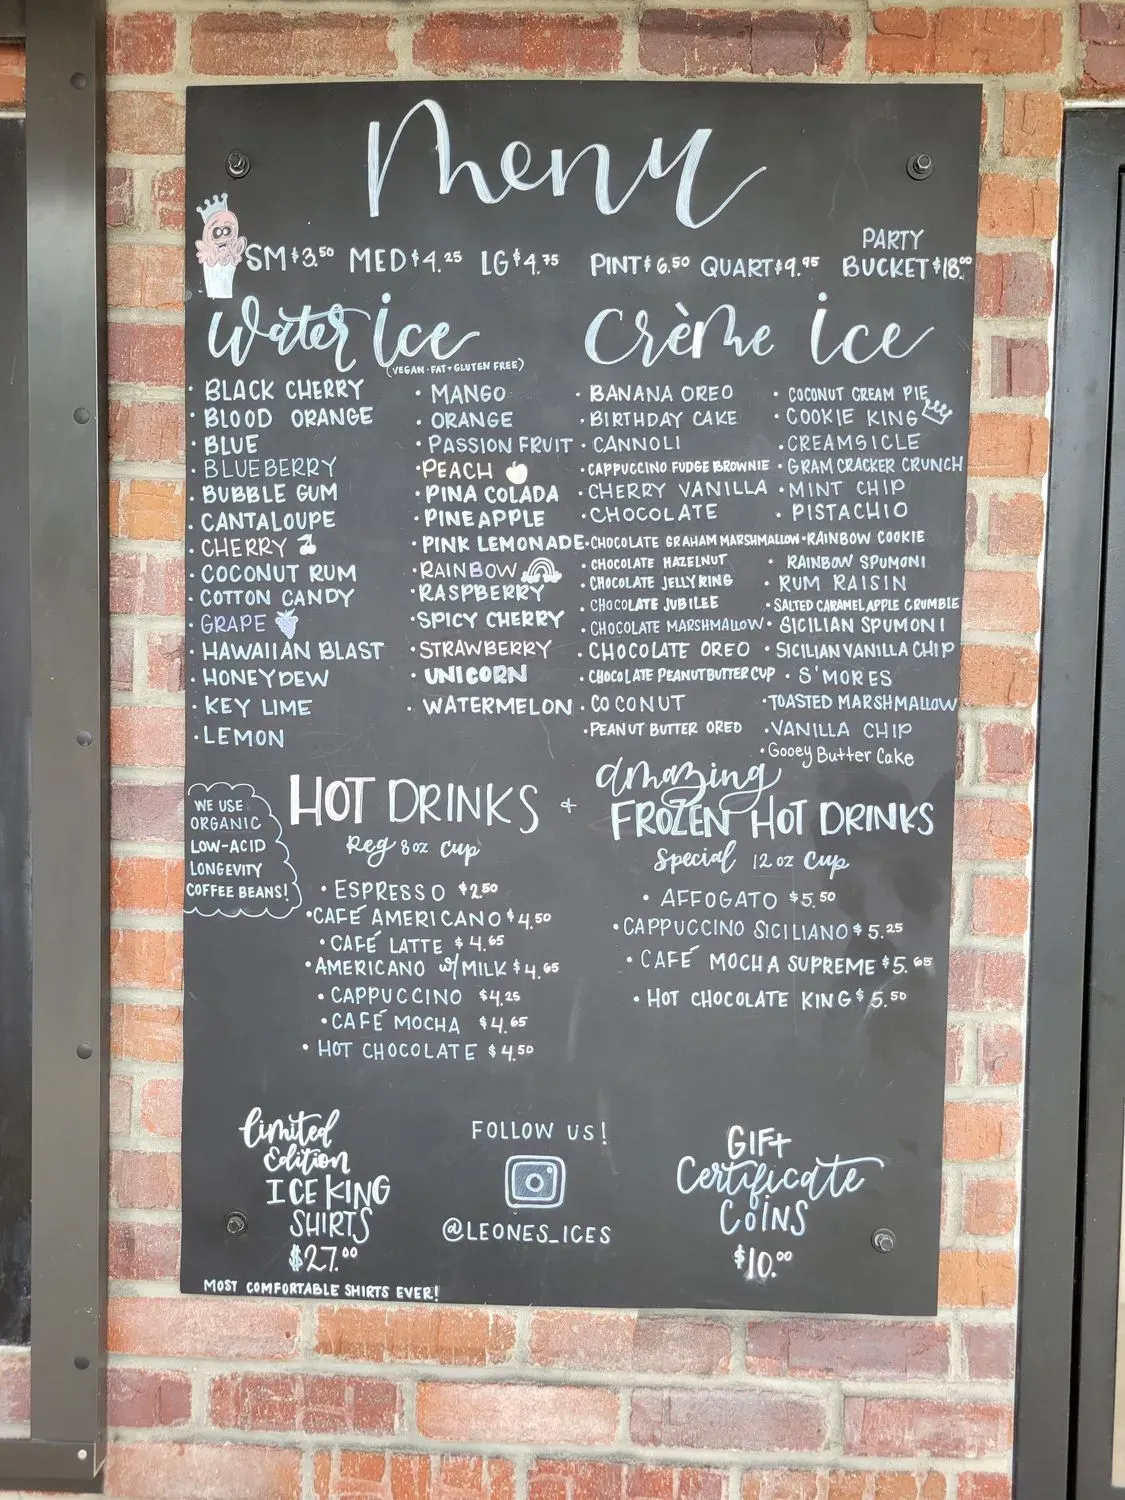 Menu
SM $3.50 MED $4.25 LG $4.75 PINT $6.50 QUART $9.95 PARTY BUCKET $18.00
Water Ice
(VEGAN · FAT + GLUTEN FREE)
• BLACK CHERRY
• BLOOD ORANGE
• BLUE
• BLUEBERRY
• BUBBLE GUM
• CANTALOUPE
• CHERRY
• COCONUT RUM
• COTTON CANDY
• GRAPE
• HAWAIIAN BLAST
• HONEYDEW
• KEY LIME
• LEMON
• MANGO
• ORANGE
• PASSION FRUIT
• PEACH
• PINA COLADA
• PINEAPPLE
• PINK LEMONADE
• RAINBOW
• RASPBERRY
• SPICY CHERRY
• STRAWBERRY
• UNICORN
• WATERMELON
Crème Ice
• BANANA OREO
• BIRTHDAY CAKE
• CANNOLI
• CAPPUCCINO FUDGE BROWNIE
• CHERRY VANILLA
• CHOCOLATE
• CHOCOLATE GRAHAM MARSHMALLOW
• CHOCOLATE HAZELNUT
• CHOCOLATE JELLY RING
• CHOCOLATE JUBILEE
• CHOCOLATE MARSHMALLOW
• CHOCOLATE OREO
• CHOCOLATE PEANUT BUTTER CUP
• COCONUT
• PEANUT BUTTER OREO
• COCONUT CREAM PIE
• COOKIE KING
• CREAMSICLE
• GRAM CRACKER CRUNCH
• MINT CHIP
• PISTACHIO
• RAINBOW COOKIE
• RAINBOW SPUMONI
• RUM RAISIN
• SALTED CARAMEL APPLE CRUMBLE
• SICILIAN SPUMONI
• SICILIAN VANILLA CHIP
• S'MORES
• TOASTED MARSHMALLOW
• VANILLA CHIP
• Gooey Butter Cake
WE USE
ORGANIC
LOW-ACID
LONGEVITY
COFFEE BEANS!
HOT DRINKS +
Reg 8 oz Cup
• ESPRESSO $2.50
• CAFÉ AMERICANO $4.50
• CAFÉ LATTE $4.65
• AMERICANO w/ MILK $4.65
• CAPPUCCINO $4.25
• CAFÉ MOCHA $4.65
• HOT CHOCOLATE $4.50
amazing
FROZEN HOT DRINKS
Special 12 oz Cup
• AFFOGATO $5.50
• CAPPUCCINO SICILIANO $5.25
• CAFÉ MOCHA SUPREME $5.65
• HOT CHOCOLATE KING $5.50
limited
Edition
ICE KING
SHIRTS
$27.00
MOST COMFORTABLE SHIRTS EVER!
FOLLOW US!
@LEONES_ICES
GIFT
Certificate
COINS
$10.00